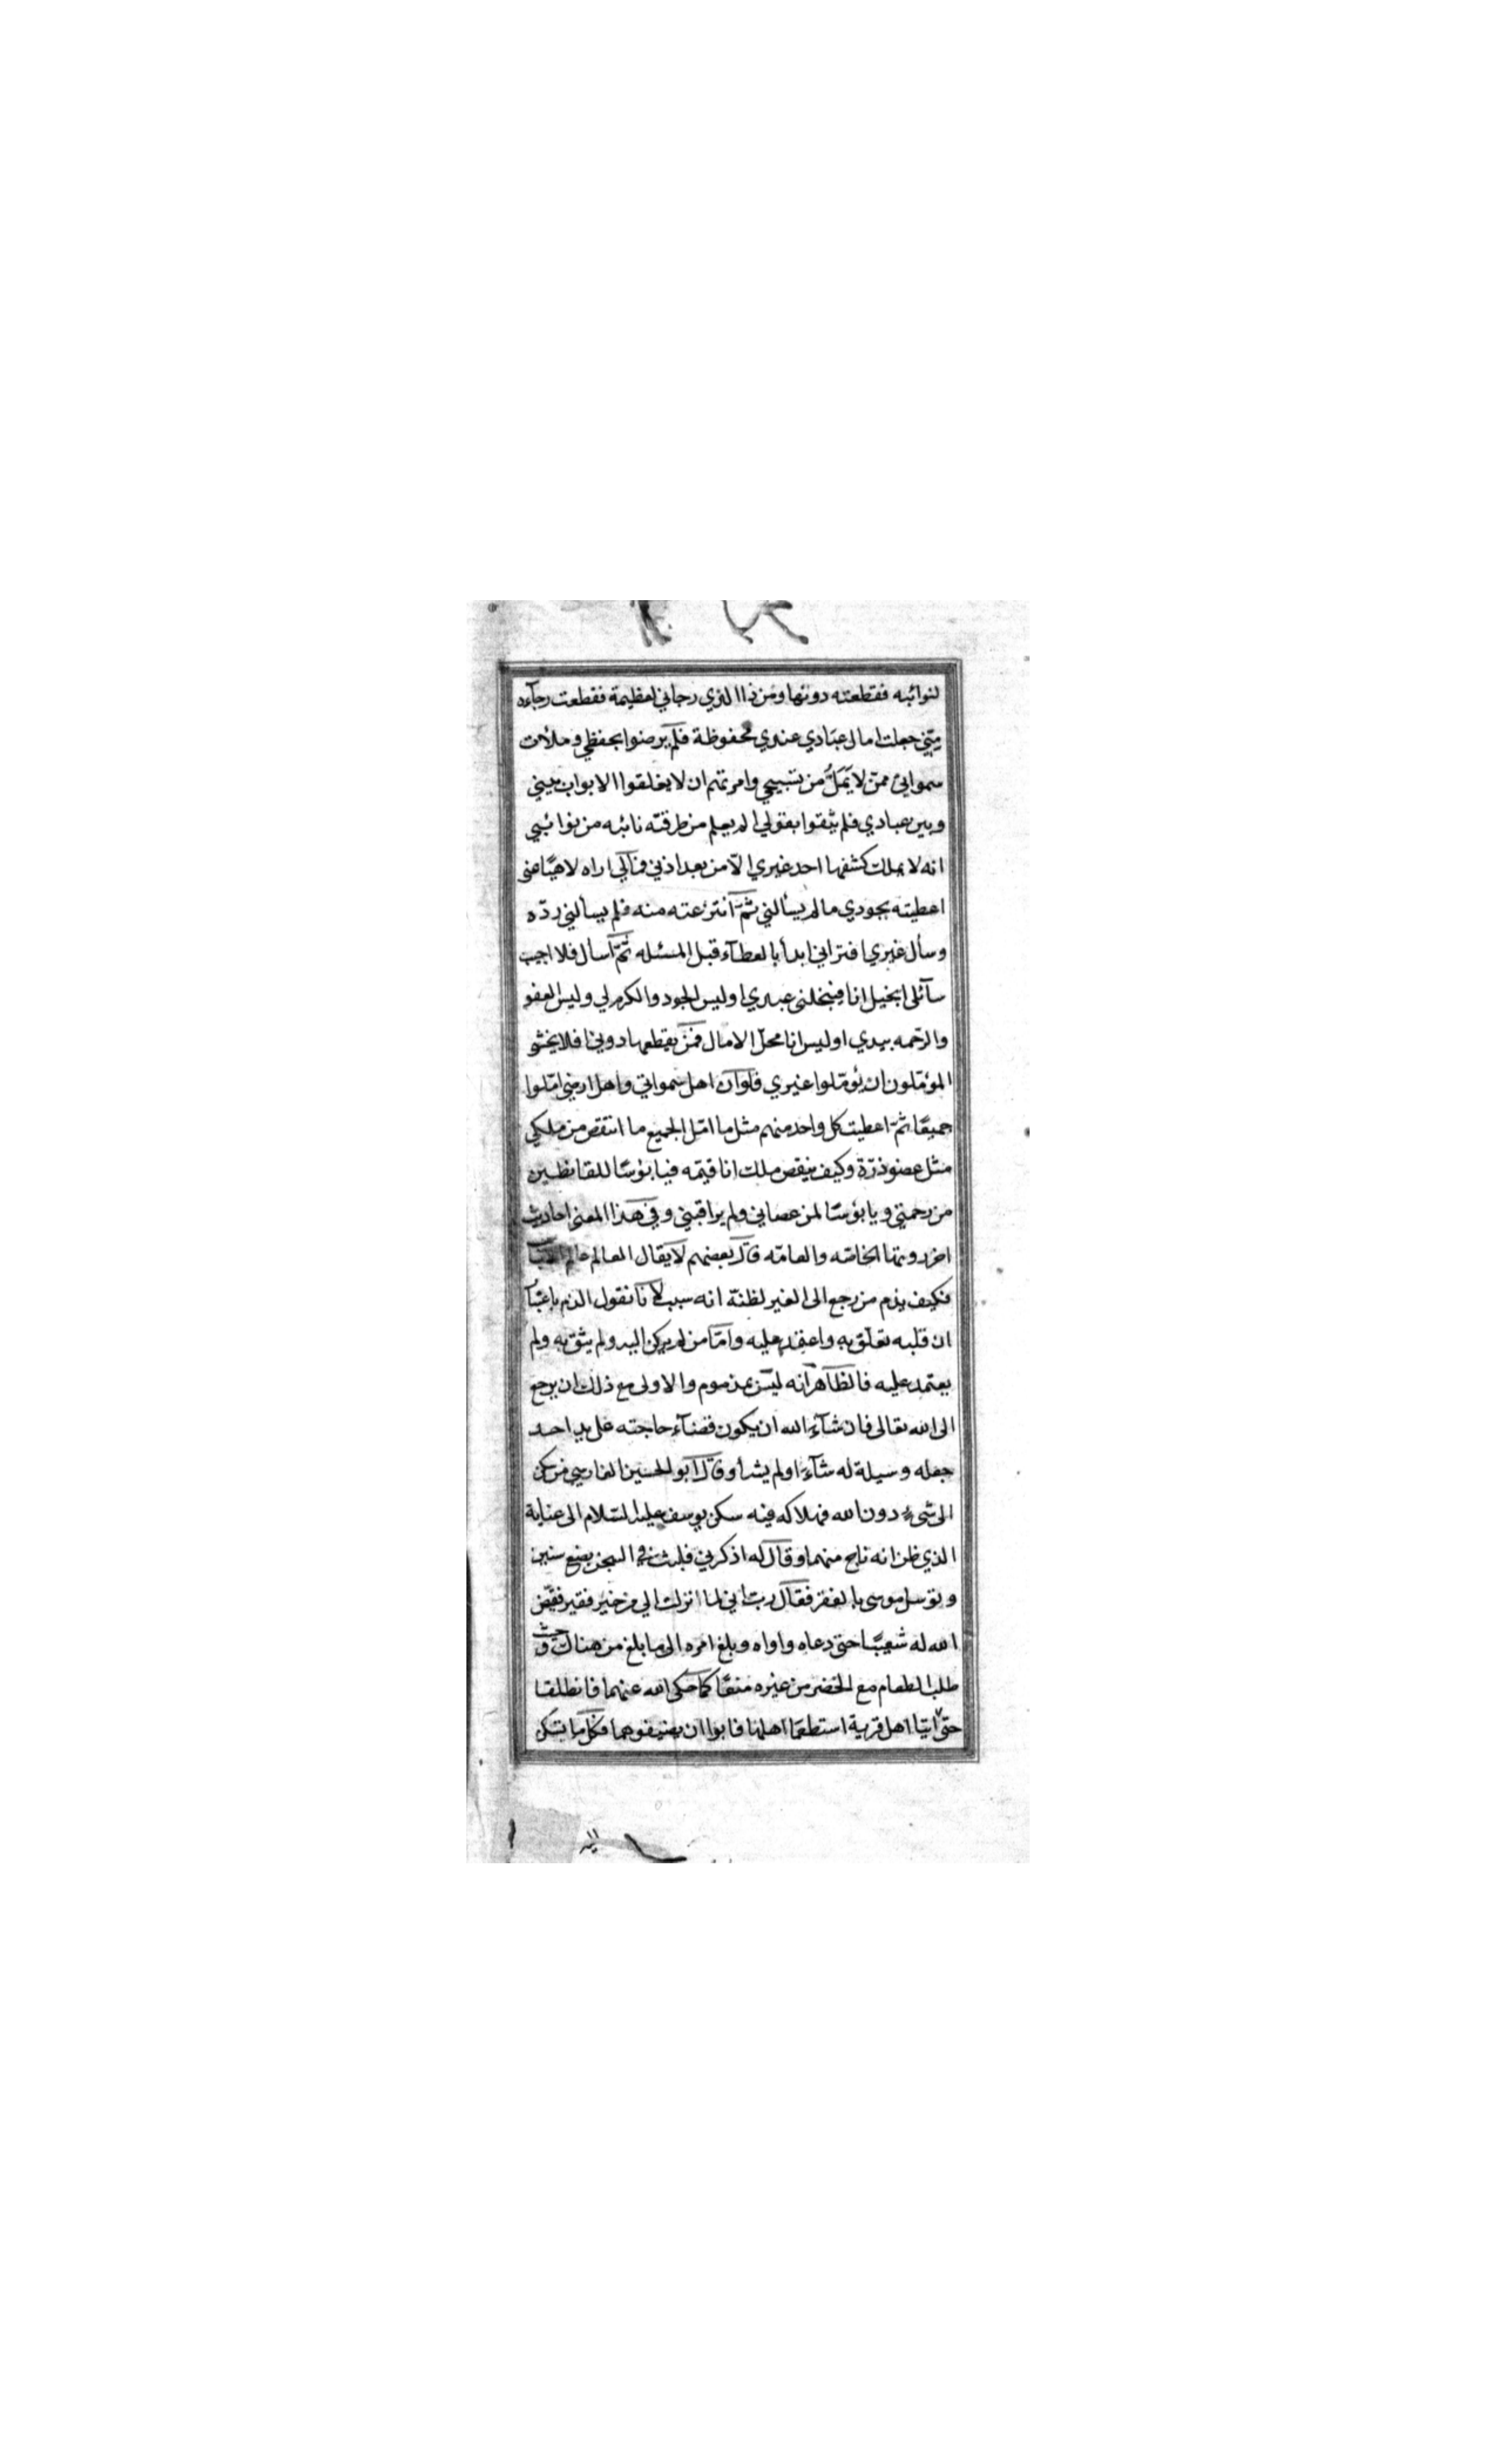 لنوائبه فقطعته دونها ومن ذا الذي رجاني لعظيمة فقطعت رجآءه
منّي جعلت امال عبادي عندي محفوظة فلم يرضوا بحفظي وملأت
سمواتي ممّن لا يَمَلُّ من تسبيحي وامرتهم ان لا يغلقوا الابواب بيني
وبين عبادي فلم يثقوا بقولي الم يعلم من طرقته نائبه من نوائبي
انه لا يملك كشفها احد غيري الّا من بعد اذني فمالي اراه لاهيًا عني
اعطيته بجودي مالم يسألني ثمّ انتزعته منه فلم يسألني ردّه
وسأل غيري افتراني ابدأ بالعطآء قبل المسئله ثمّ اسأل فلا اجيب
سآئلي ابخيل انا فيبخلني عبدي اوليس الجود والكرم لي وليس العفو
والرّحمه بيدي اوليس انا محلّ الامال فمن يقطعها دوني افلا يخشو
المؤمّلون ان يؤمّلوا غيري فلو ان اهل سمواتي واهل ارضي امّلوا
جميعًا ثمّ اعطيت كل واحد منهم مثل ما امّل الجميع ما انتقص من ملكي
مثل عضو ذرّة وكيف ينقص ملك انا قيّمه فيا بؤسًا للقانطين
من رحمتي ويا بؤسًا لمن عصاني ولم يراقبني وفي هذا المعنى احاديث
اخر دونتها الخاصّه والعامّه قال بعضهم لا يقال العالم عالم
فكيف يذم من رجع الى الغير لظنّه انه سبب لانا نقول الذم باعتبا
ان قلبه تعلّق به واعتمد عليه وامّا من لم يركن اليه ولم يثق به ولم
يعتمد عليه فالظاهر انه ليس بمذموم والاولى مع ذلك ان يرجع
الى الله تعالى فان شآء الله ان يكون قضآء حاجته على يد احد
جعله وسيلة له شآء او لم يشأ وقال ابو الحسين الفارسي من ركن
الى شيء دون الله فهلاكه فيه سكن يوسف عليه السّلام الى عناية
الذي ظن انه ناج منهما وقال له اذكرني فلبث في السجن بضع سنين
وتوسل موسى بالفقر فقال رب اني لما انزلت الي من خير فقير فقيّض
الله له شعيبًا حتى دعاه واواه وبلغ امره الى ما بلغ من هناك وحيث
طلب الطعام مع الخضر من غيره منعًا كما حكى الله عنهما فانطلقا
حتى اتيا اهل قرية استطعما اهلها فابوا ان يضيفوهما فكل ما